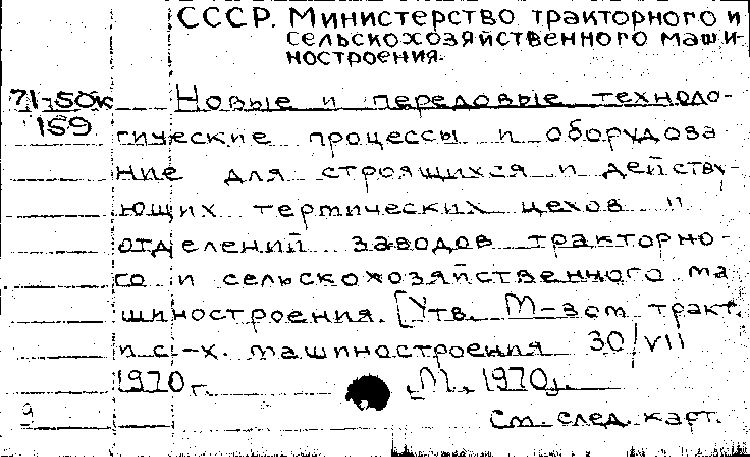 СССР. Министерство тракторного и
сельскохозяйственного маши-
ностроения.
71-50к Новые и передовые техноло-
159 гические процессы и оборудова
ние для строящихся и действу-
ющих термических цехов и
отделений заводов тракторно-
го и сельскохозяйственного ма
шиностроения. [Утв. М-вом тракт.
и с.-х. машиностроения 30/VII
1970 г. М., 1970].
9 См. след. карт.